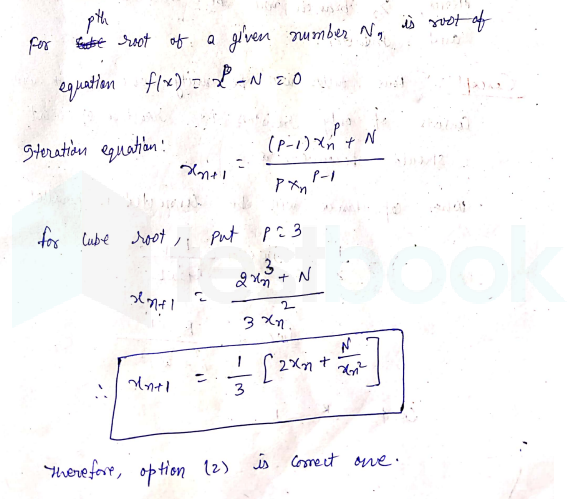 pth
For root of a given number N, is root of
equation f(x) = x^p - N = 0
Iteration equation: x_{n+1} = \frac{(p-1) x_n^p + N}{p x_n^{p-1}}
for cube root, put p = 3
x_{n+1} = \frac{2x_n^3 + N}{3 x_n^2}
∴ x_{n+1} = \frac{1}{3} [2x_n + \frac{N}{x_n^2}]
Therefore, option (2) is correct one.
testbook